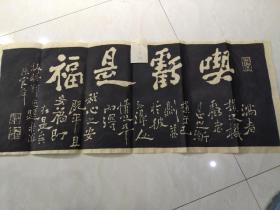 喫虧是福
滿者
損之機
虧者
盈之漸
損于己
則益
于彼
外得人
情之平
内得
我心之安
既平且
安福即
在是矣